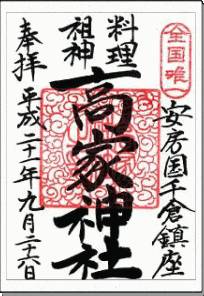 全国唯一
安房国千倉鎮座
料理
祖神
高家神社
奉拝
平成二十一年九月二十六日